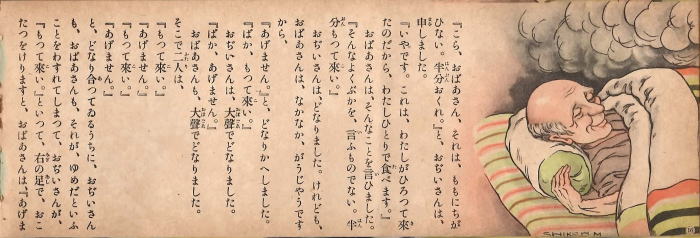 『こら、おばあさん、それは、ももにちが
ひない。半分おくれ』と、おぢいさんは、
申しました。
『いやです。これは、わたしがひろつて來
たのだから、わたしひとりで食べます。』
おばあさんは、そんなことを言ひました。
『そんなよくぶかを、言ふものでない。半
分もつて來い。』
おぢいさんは、どなりました。けれども、
おばあさんは、なかなか、がうじやうです
から、
『あげません。』と、どなりかへしました。
『ばか、もつて來い。』
おぢいさんは、大聲でどなりました。
『ばか、あげません。』
おばあさんも、大聲でどなりました。
そこで二人は、
『もつて來い。』
『あげません。』
『もつて來い。』
『あげません。』
と、どなり合つてゐるうちに、おぢいさん
も、おばあさんも、それが、ゆめだといふ
ことをわすれてしまつて、おぢいさんが、
『もつて來い。』といつて、右の足で、おこ
たつをけりますと、おばあさんは『あげま